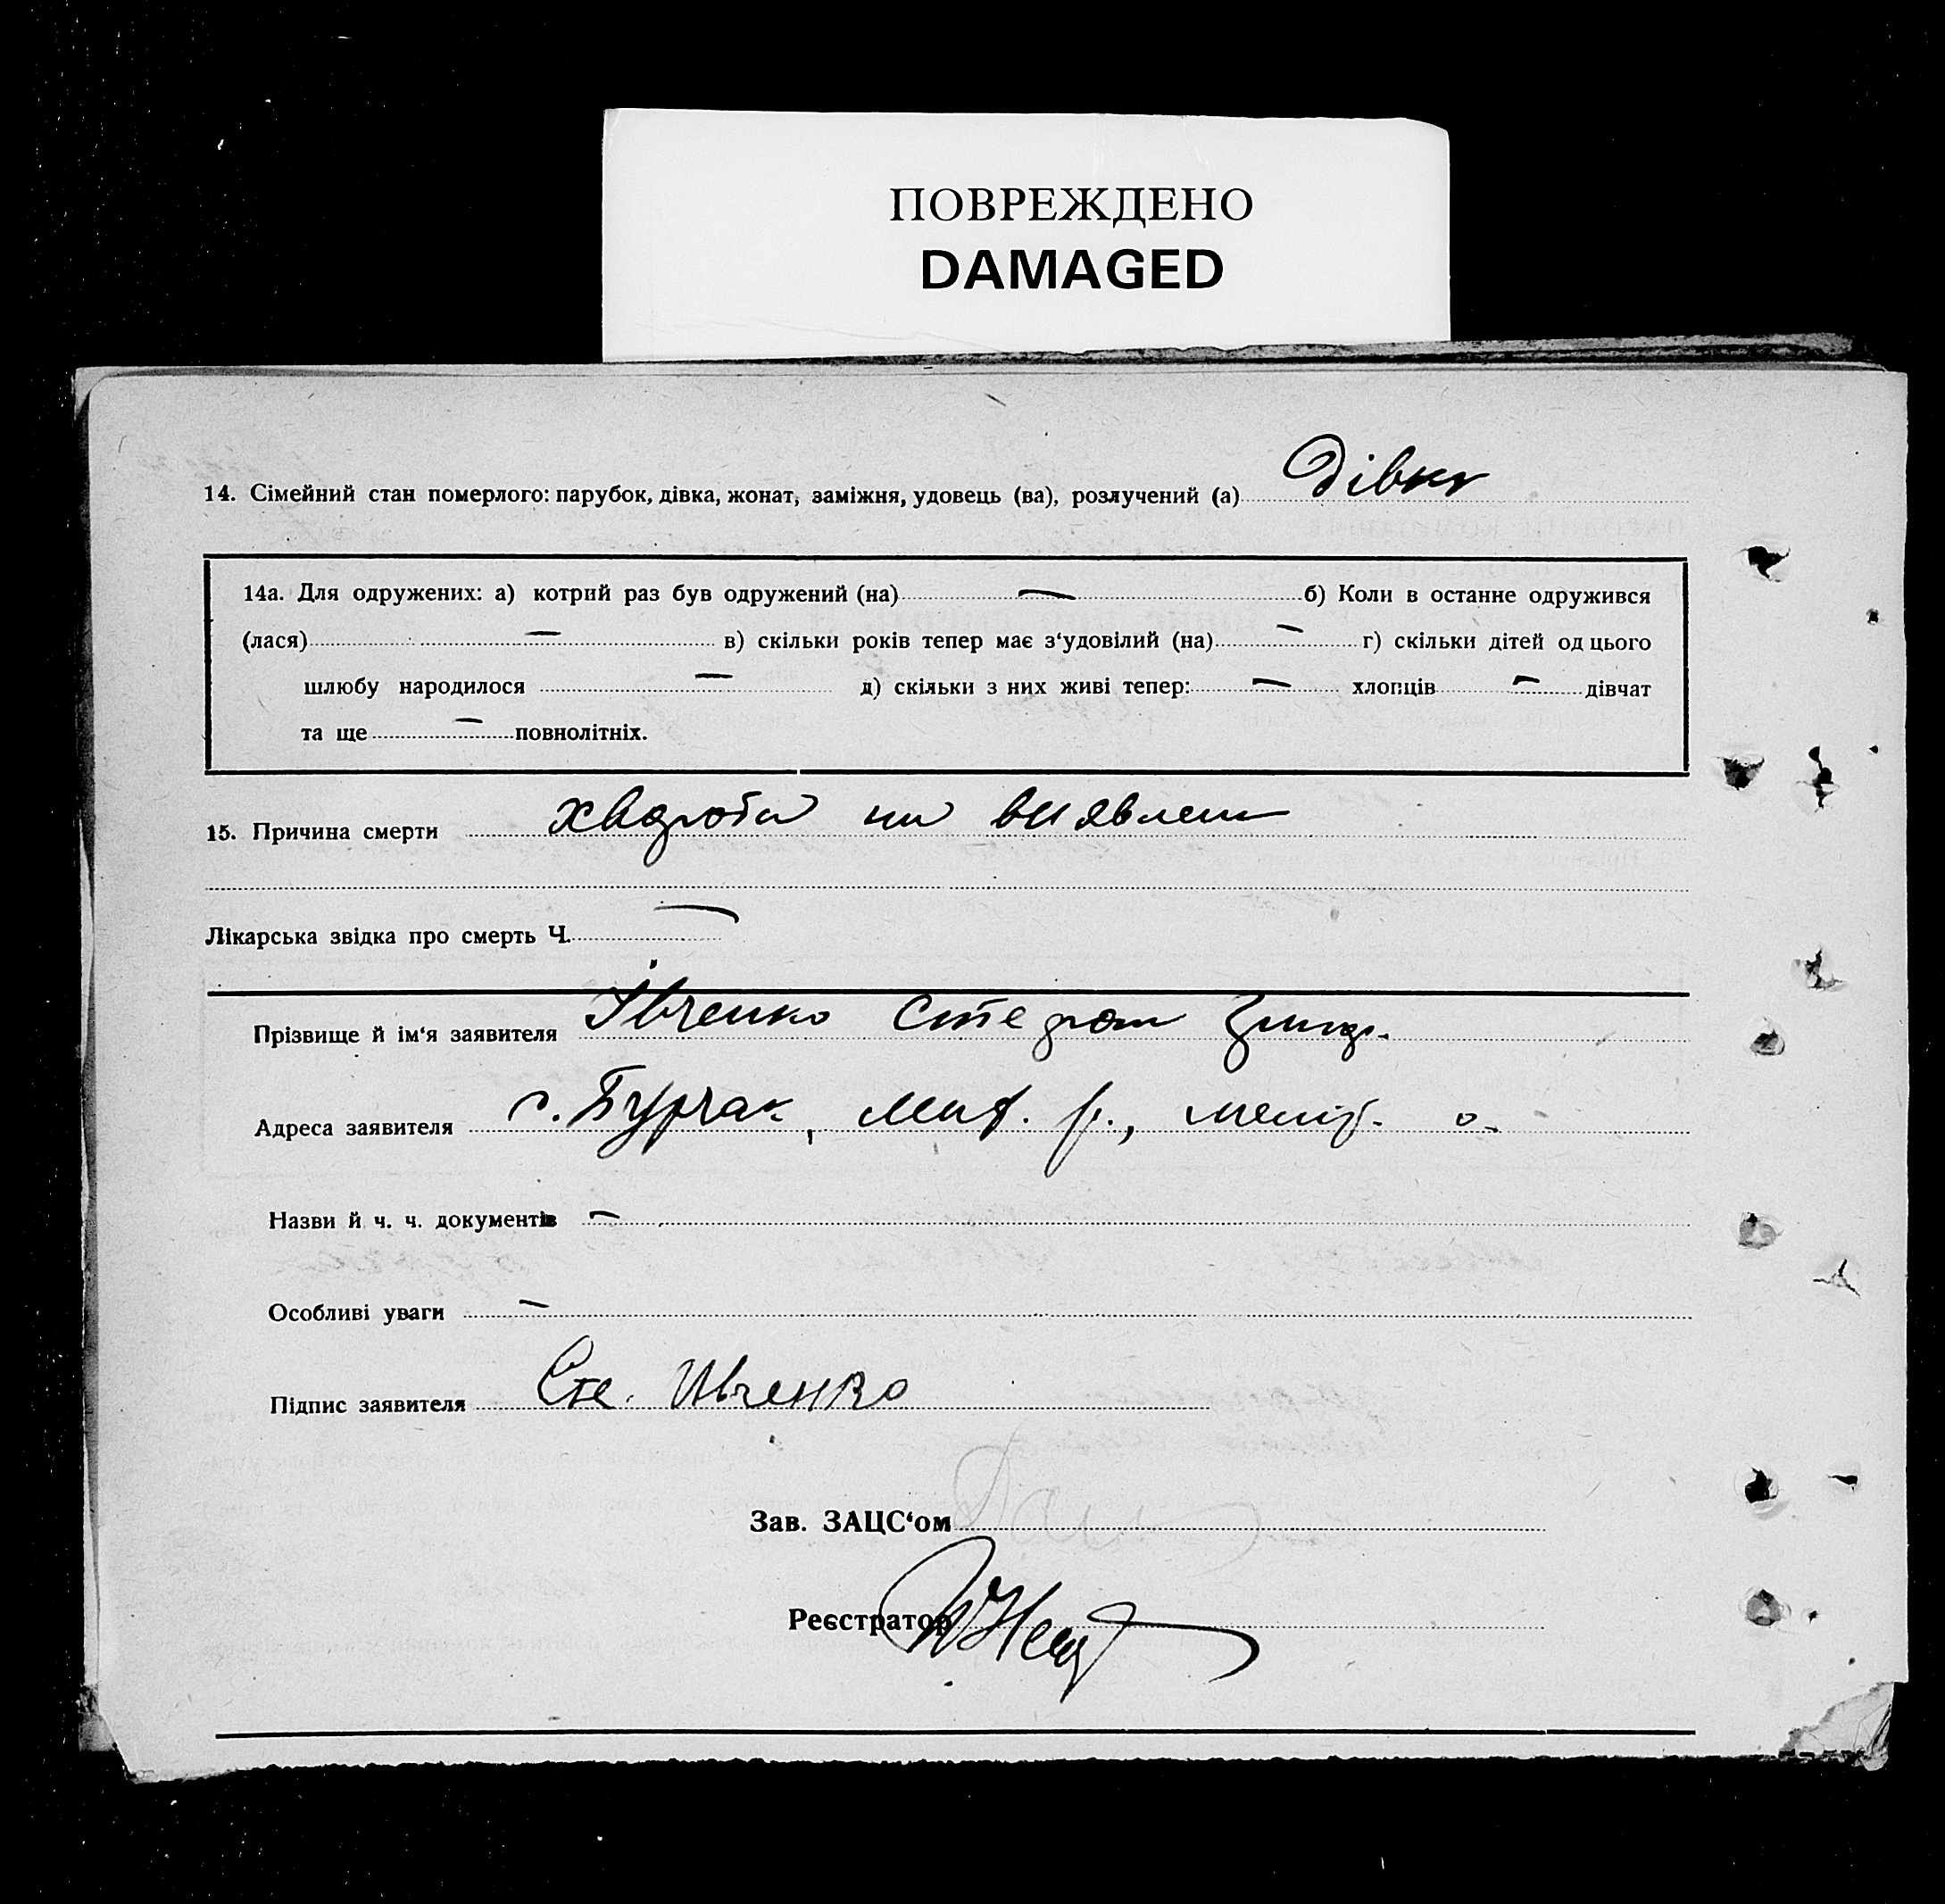 ПОВРЕЖДЕНО
DAMAGED
14. Сімейний стан померлого: парубок, дівка, жонат, заміжня, удовець (ва), розлучений (а) Дівка
14а. Для одружених: а) котрий раз був одружений (на) — б) Коли в останне одружився
(лася) — в) скільки років тепер має з‘удовілий (на) — г) скільки дітей од цього
шлюбу народилося — д) скільки з них живі тепер: — хлопців — дівчат
та ще — повнолітніх.
15. Причина смерти хвароба не виявлена
Лікарська звідка про смерть Ч. —
Прізвище й ім‘я заявителя Івченко
Адреса заявителя с. Бурчак, Мих. р., меліт. о.
Назви й ч. ч. документів —
Особливі уваги —
Підпис заявителя Сте. Ивченко
Зав. ЗАЦС‘ом
Реєстратор